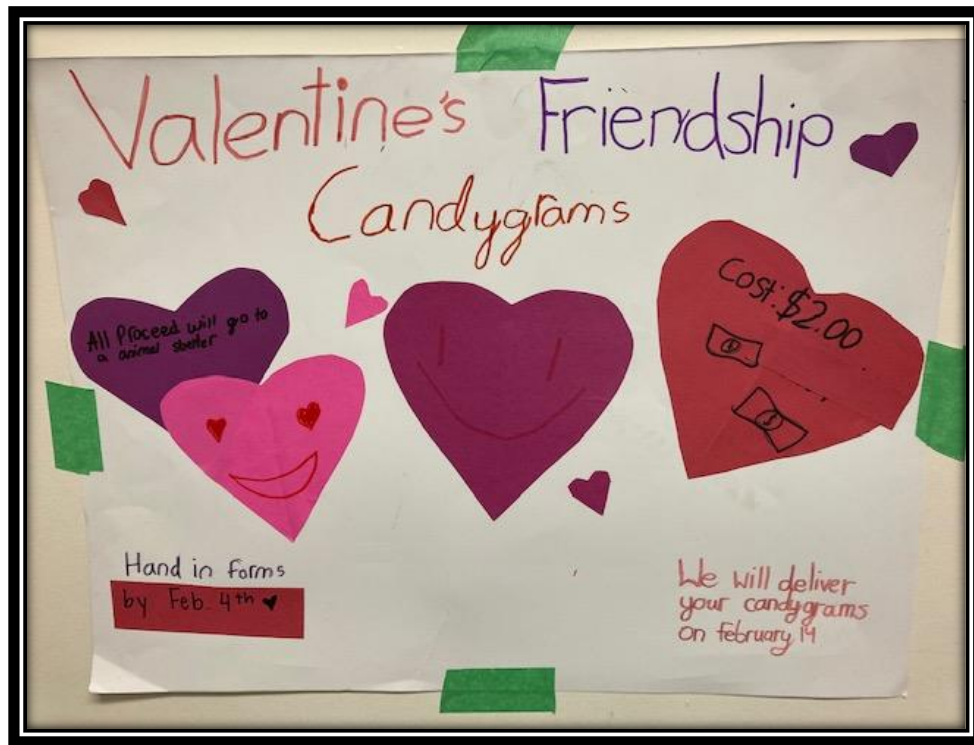 Valentine's Friendship
Candygrams
All Proceed will go to
a animal shelter
Cost: $2.00
$
$
Hand in forms
by Feb. 4th ♥
We will deliver
your candygrams
on february 14